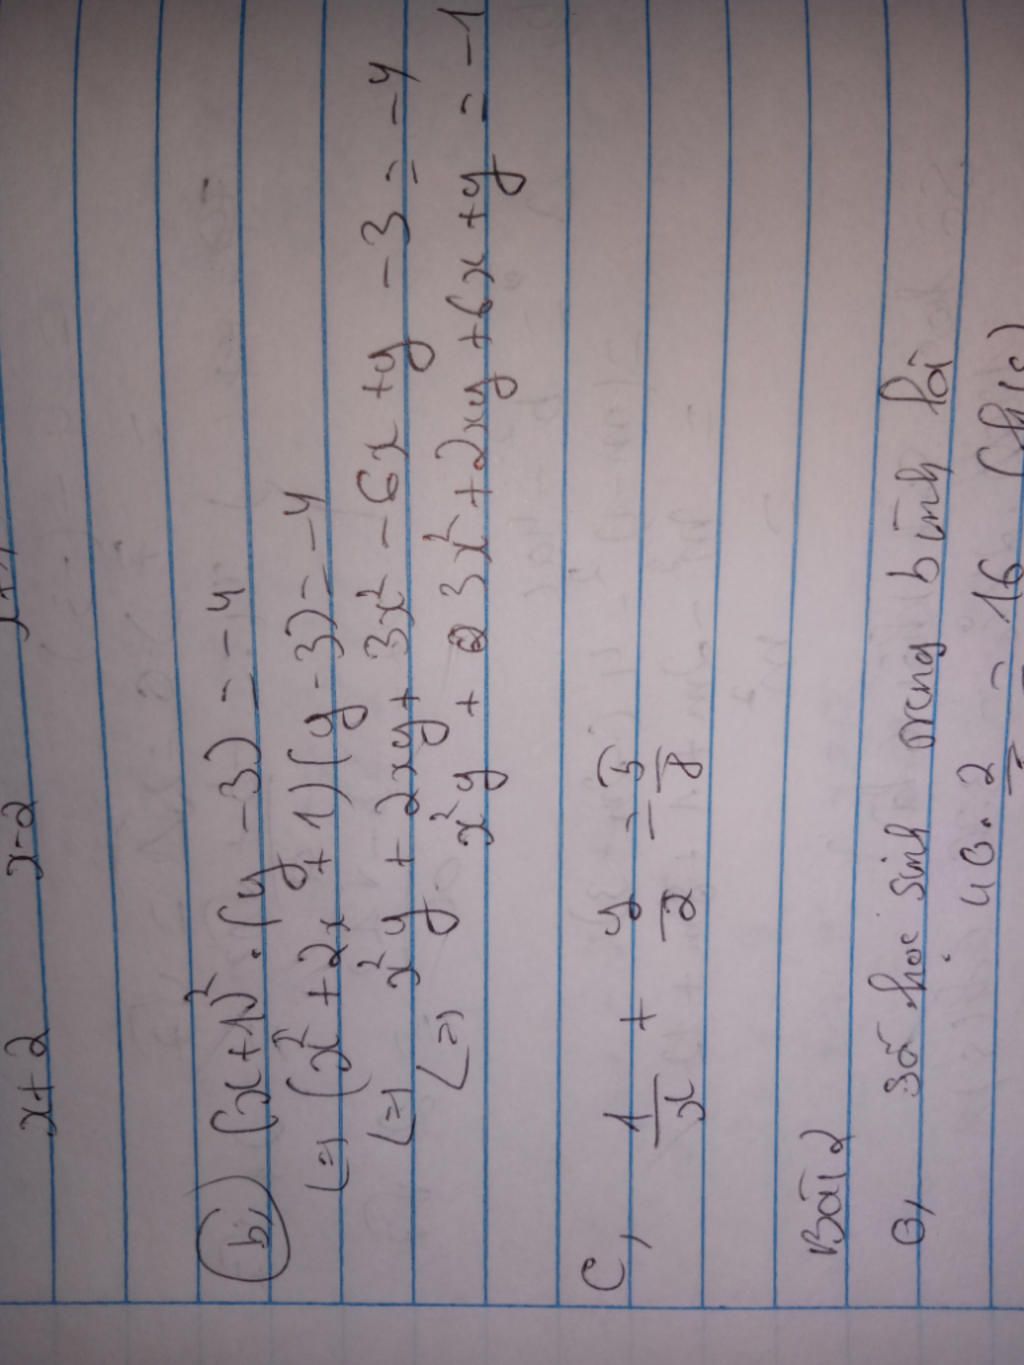 x+2 x-2
b, (x+1)². (y -3) = -4
<=> (x² + 2x + 1)(y - 3) = -4
<=> x²y + 2xy + 3x² - 6x + y - 3 = -4
<=> x²y + 3x² + 2xy + 6x + y = -1
C, 1/x + y/2 = 3/8
Bài 2
a, Số học sinh trung bình là
40. 2 = 16